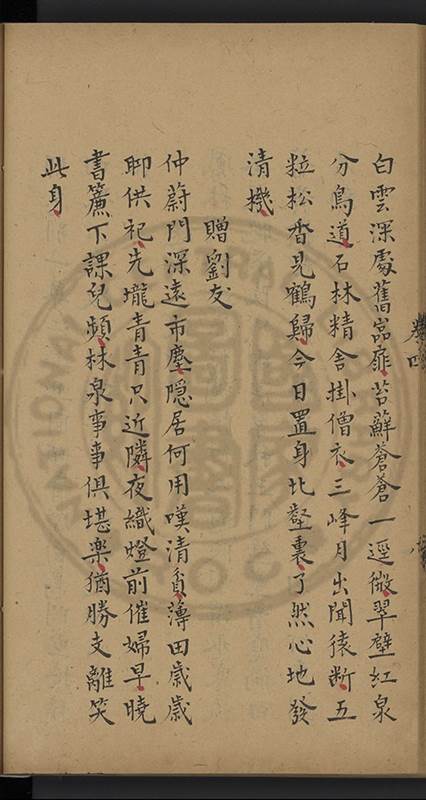 白雲深處舊嵓扉苔蘚蒼蒼一逕微翠壁紅泉
分鳥道石林精舍掛僧衣三峰月出聞猿斷五
粒松香見鶴歸今日置身此壑裏了然心地發
清機
贈劉友
仲蔚門深遠市塵隱居何用嘆清貧薄田歲歲
聊供祀先壠青青只近隣夜織燈前催婦早曉
書簾下課兒頻林泉事事俱堪樂猶勝支離笑
此身